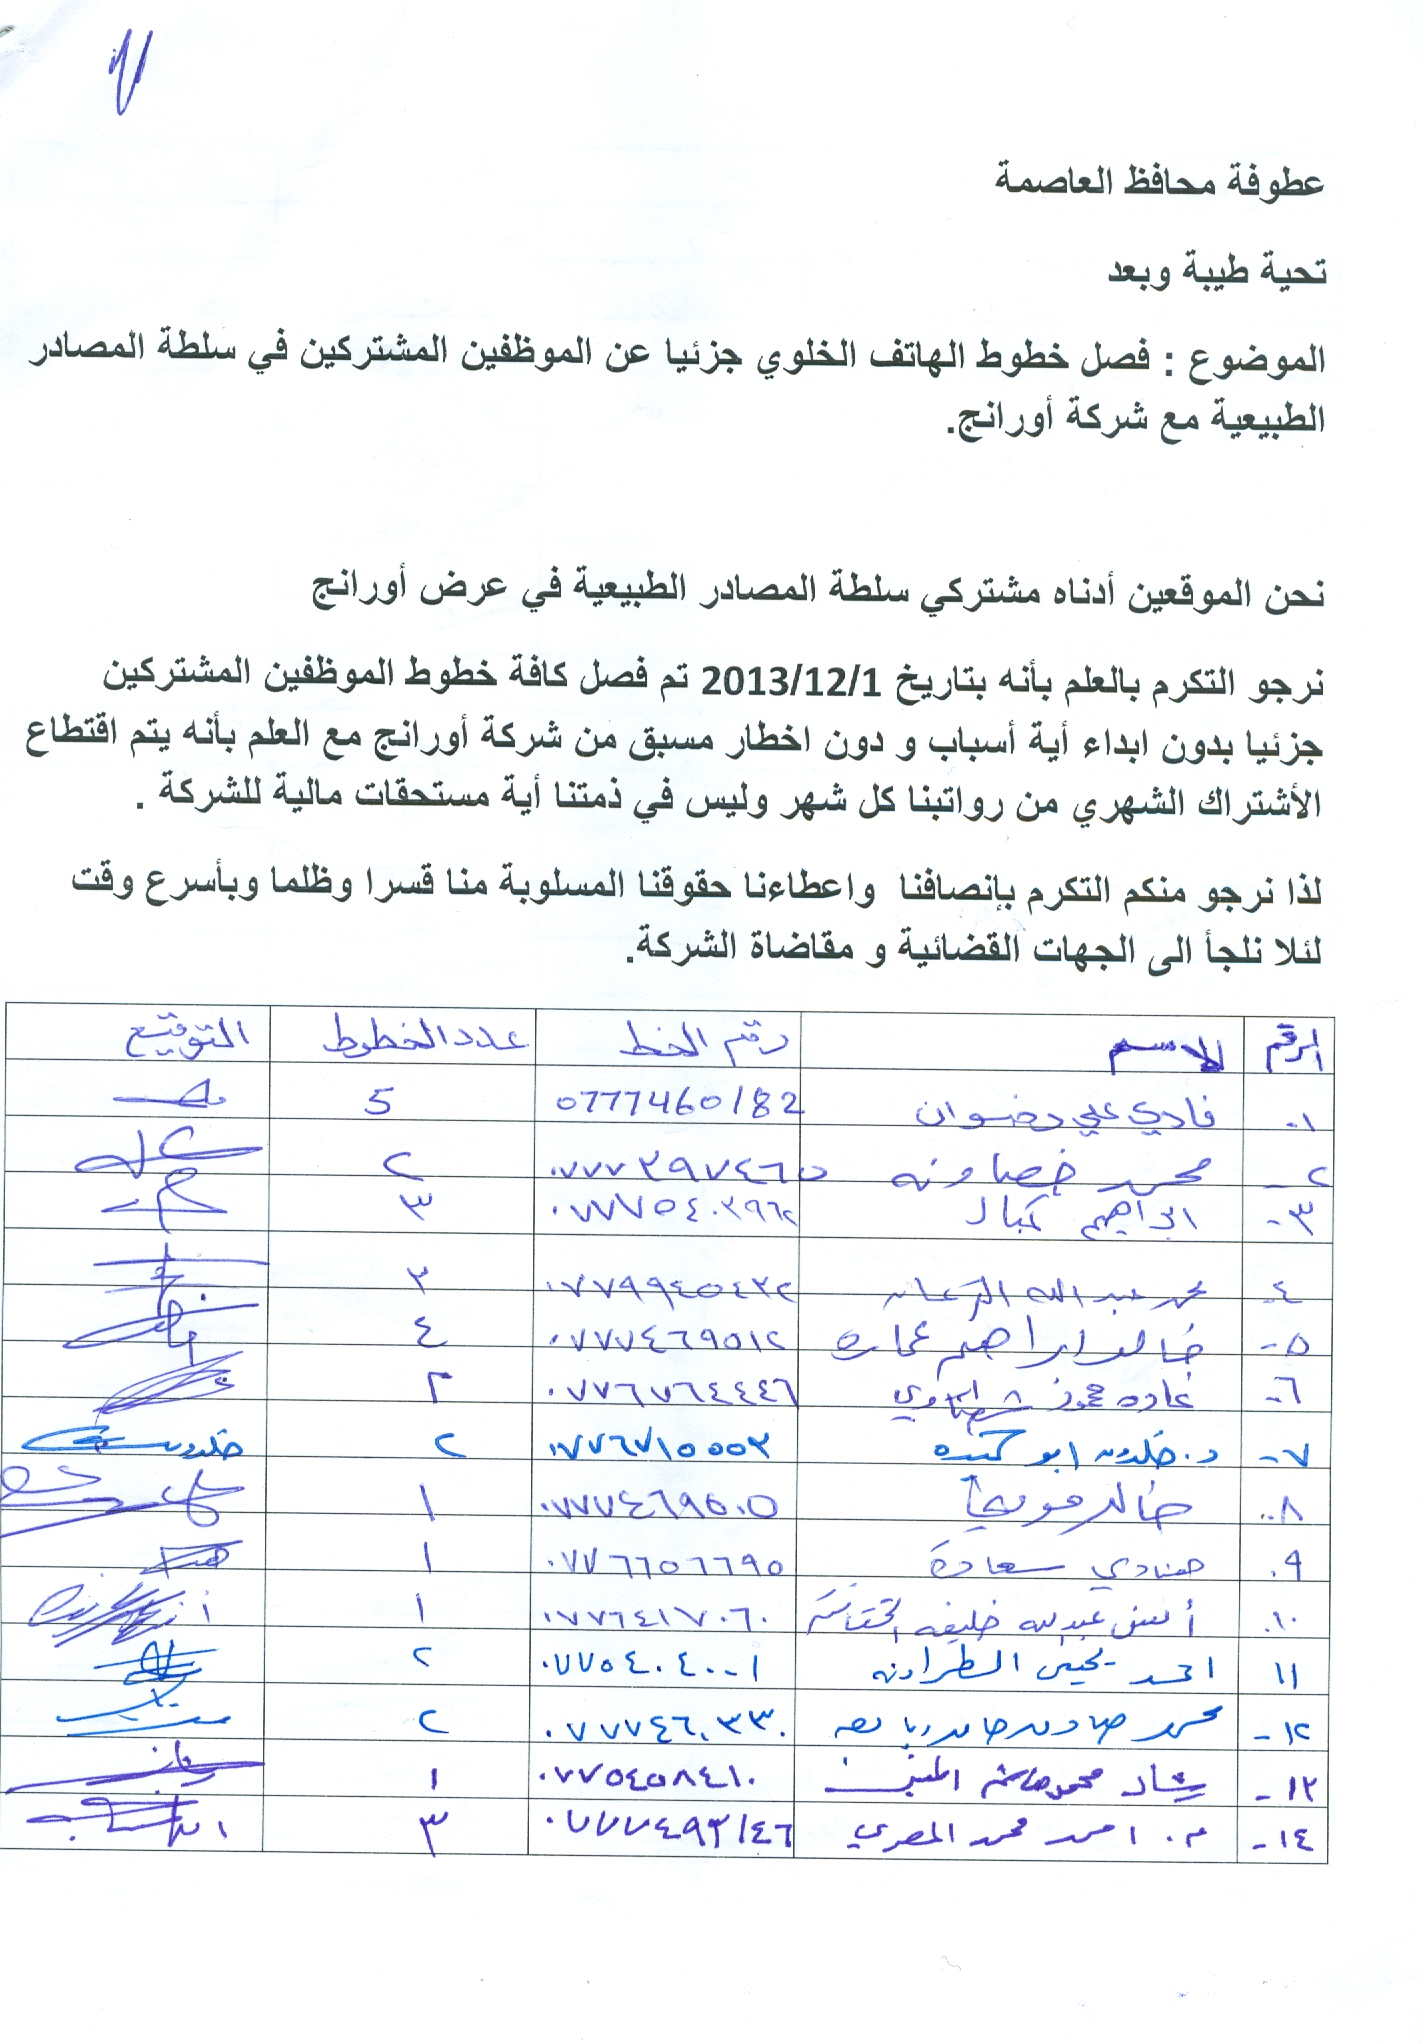 عطوفة محافظ العاصمة
تحية طيبة وبعد
الموضوع : فصل خطوط الهاتف الخلوي جزئيا عن الموظفين المشتركين في سلطة المصادر
الطبيعية مع شركة أورانج.
نحن الموقعين أدناه مشتركي سلطة المصادر الطبيعية في عرض أورانج
نرجو التكرم بالعلم بأنه بتاريخ 2013/12/1 تم فصل كافة خطوط الموظفين المشتركين
جزئيا بدون ابداء أية أسباب و دون اخطار مسبق من شركة أورانج مع العلم بأنه يتم اقتطاع
الأشتراك الشهري من رواتبنا كل شهر وليس في ذمتنا أية مستحقات مالية للشركة .
لذا نرجو منكم التكرم بإنصافنا واعطاءنا حقوقنا المسلوبة منا قسرا وظلما وبأسرع وقت
لئلا نلجأ الى الجهات القضائية و مقاضاة الشركة.
الرقم الاسم رقم الخط عدد الخطوط التوقيع
١- فادي علي رضوان 0777460182 5
٢- محمد خصاونه ٠٧٧٧٣٩٧٤٦٥ ٢
٣- ابراهيم ٣
٤- محمد عبد الله ٠٧٧٩٩٤٥٤٣٢ ٣
٥- خالد ابراهيم عماره ٠٧٧٧٤٦٩٥١٢ ٤
٦- غاده محمود ٠٧٧٦٧٦٤٤٤٦ ٢
٧- د. خلدون ابو ٠٧٧٦٧١٥٥٥٣ ٢
٨- خالد ٠٧٧٧٤٦٩٥٠٥ ١
٩- هنادي سعادة ٠٧٧٦٦٥٦٦٩٥ ١
١٠- أنس عبدالله خليفه ٠٧٧٦٤١٧٠٦٠ ١
١١ احمد يحيى الطراونه ٠٧٧٥٤٠٤٠٠١ ٢
١٢- محمد ٠٧٧٧٤٦٠٣٣٠ ٢
١٣- رشاد محمود ٠٧٧٥٤٥٨٤١٠ ١
١٤- م. احمد محمد المصري ٠٧٧٧٤٩٣١٤٦ ٣